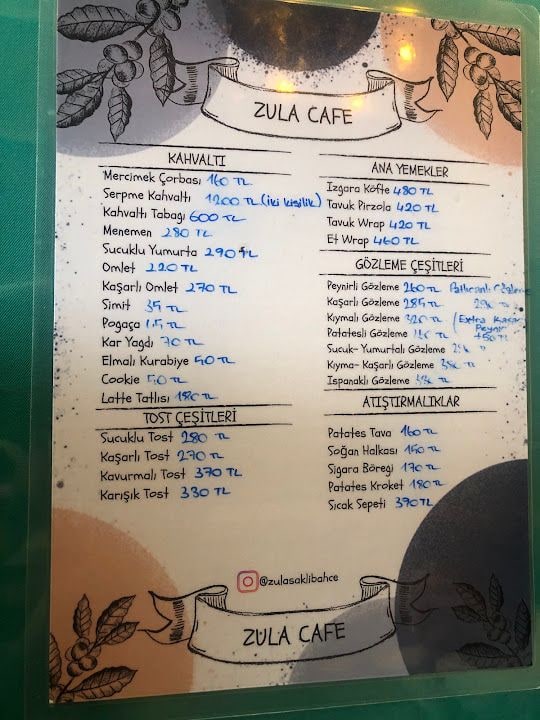 ZULA CAFE
KAHVALTI
Mercimek Çorbası 160 TL
Serpme Kahvaltı 1200 TL (iki kişilik)
Kahvaltı Tabağı 600 TL
Menemen 280 TL
Sucuklu Yumurta 290 TL
Omlet 220 TL
Kaşarlı Omlet 270 TL
Simit 35 TL
Poğaça TL
Kar Yağdı 70 TL
Elmalı Kurabiye 50 TL
Cookie 50 TL
Latte Tatlısı 180 TL
TOST ÇEŞİTLERİ
Sucuklu Tost 280 TL
Kaşarlı Tost 270 TL
Kavurmalı Tost 370 TL
Karışık Tost 330 TL
ANA YEMEKLER
Izgara Köfte 480 TL
Tavuk Pirzola 420 TL
Tavuk Wrap 420 TL
Et Wrap 460 TL
GÖZLEME ÇEŞİTLERİ
Peynirli Gözleme 260 TL Patlıcanlı Gözleme
Kaşarlı Gözleme 285 TL
Kıymalı Gözleme 320 TL (Extra Kaşar
Peynir
+50 TL
Patatesli Gözleme TL
Sucuk-Yumurtalı Gözleme
Kıyma-Kaşarlı Gözleme TL
Ispanaklı Gözleme TL
ATIŞTIRMALIKLAR
Patates Tava 160 TL
Soğan Halkası 150 TL
Sigara Böreği 170 TL
Patates Kroket 180 TL
Sıcak Sepeti 370 TL
@zulasaklibahce
ZULA CAFE